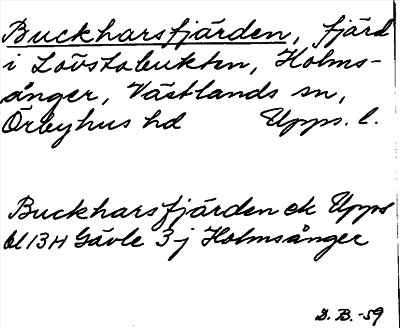 Buckharsfjärden, fjärd
i Lövstabukten, Holms-
ånger, Västlands sn,
Örbyhus hd Upps. l.
Buckharsfjärden ek Upps
bl 13H Gävle 3j Holmsånger
D. B. -59